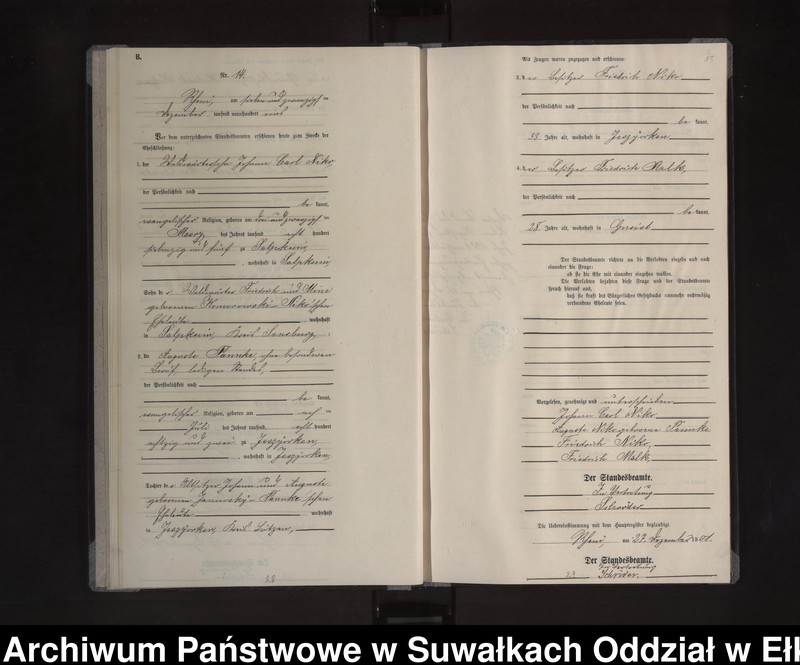 B.
Nr. 14.
am sieben und zwanzigsten
Dezember tausend neunhundert und
Vor dem unterzeichneten Standesbeamten erschienen heute zum Zwecke der
Eheschließung:
1. der Johann Carl Niko,
der Persönlichkeit nach
be kannt,
evangelischer Religion, geboren am drei und zwanzigsten
März des Jahres tausend acht hundert
siebenzig und fünf zu Salpkeim,
, wohnhaft in Salpkeim
Sohn de r Waldwärter Friedrich und
geborenen Niko'schen
Eheleute wohnhaft
in Salpkeim, Kreis Sensburg,
2. die Auguste Pannke, ohne besonderen
Beruf, ledigen Standes,
der Persönlichkeit nach
be kannt,
evangelischer Religion, geboren am
Juli des Jahres tausend acht hundert
achtzig und zwei zu Jesziorken,
, wohnhaft in Jesziorken,
Tochter de r Johann und Auguste
geborenen Pannke'schen
Eheleute wohnhaft
in Jesziorken, Kreis Lötzen,
Als Zeugen waren zugezogen und erschienen:
3. der Besitzer Friedrich Niko
der Persönlichkeit nach
be kannt,
Jahre alt, wohnhaft in Jesziorken
4. der Besitzer Friedrich Malk,
der Persönlichkeit nach
be kannt,
28 Jahre alt, wohnhaft in Gneist
Der Standesbeamte richtete an die Verlobten einzeln und nach
einander die Frage:
ob sie die Ehe mit einander eingehen wollen.
Die Verlobten bejahten diese Frage und der Standesbeamte
sprach hierauf aus,
daß sie kraft des Bürgerlichen Gesetzbuchs nunmehr rechtmäßig
verbundene Eheleute seien.
Vorgelesen, genehmigt und unterschrieben
Johann Carl Niko
Auguste Niko geborene Pannke
Friedrich Niko,
Friedrich Malk,
Der Standesbeamte.
In Vertretung
Schröder
Die Übereinstimmung mit dem Hauptregister beglaubigt.
am 27. Dezember 1901.
Der Standesbeamte.
In Vertretung
Schröder.
Archiwum Państwowe w Suwałkach Oddział w Ełk